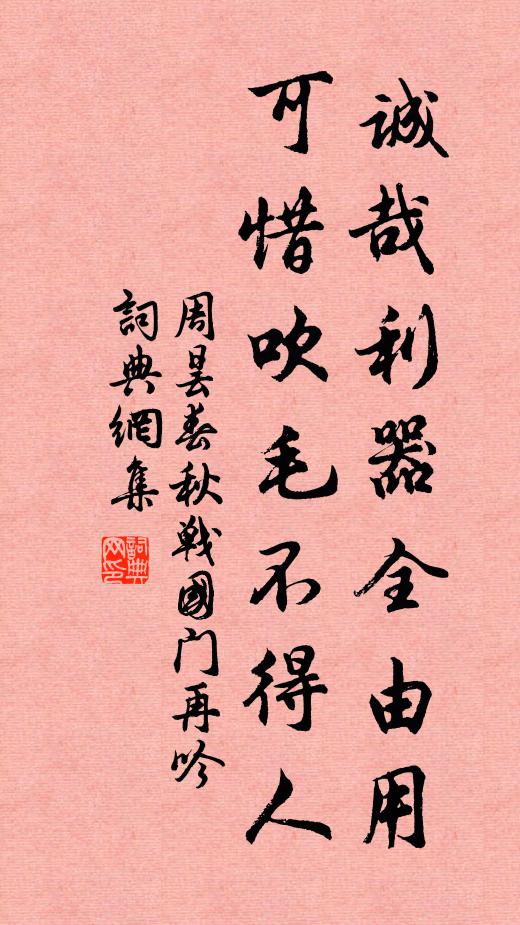 誠哉利器全由用
可惜吹毛不得人
周昙春秋戦國门再吟
詞典網集
詞典
网印